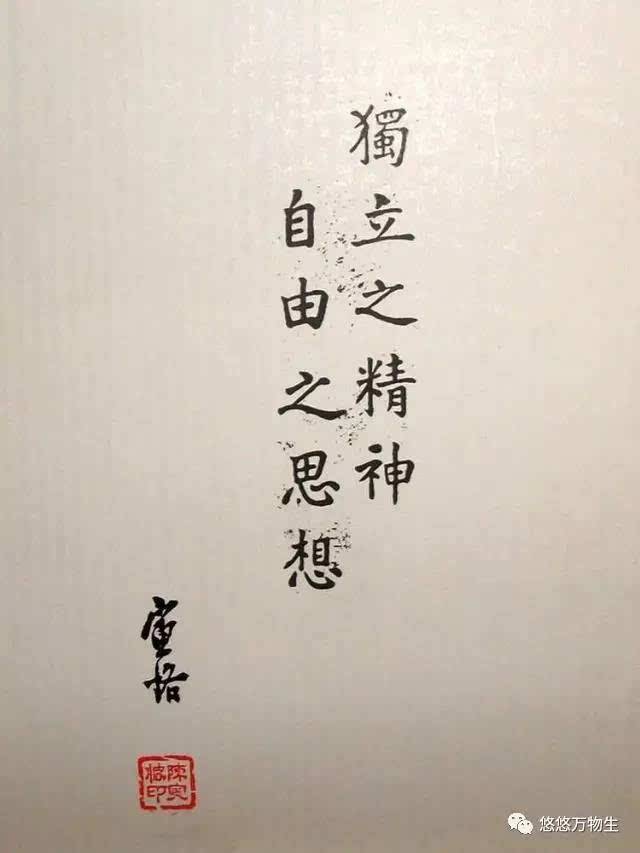 獨立之精神
自由之思想
寅恪
陳寅
恪印
悠悠万物生